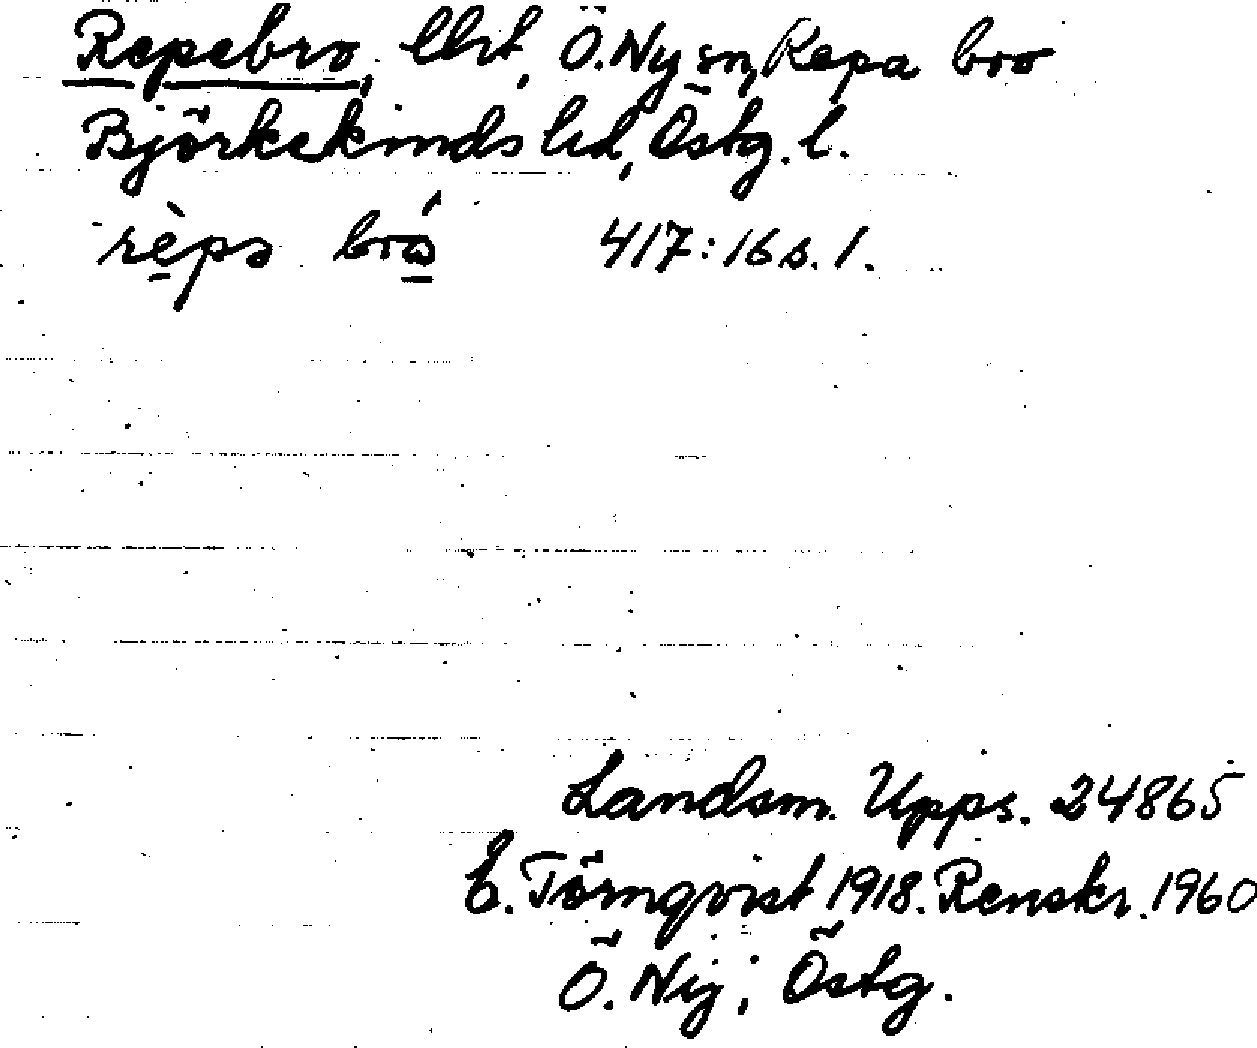 Repebro, lht, Ö. Ny sn, Repa bro
Björkekinds hd, Östg. l.
rèpə bró 417:16 s. 1.
Landsm. Upps. 24865
E. Törnqvist 1918. Renskr. 1960
Ö. Ny; Östg.